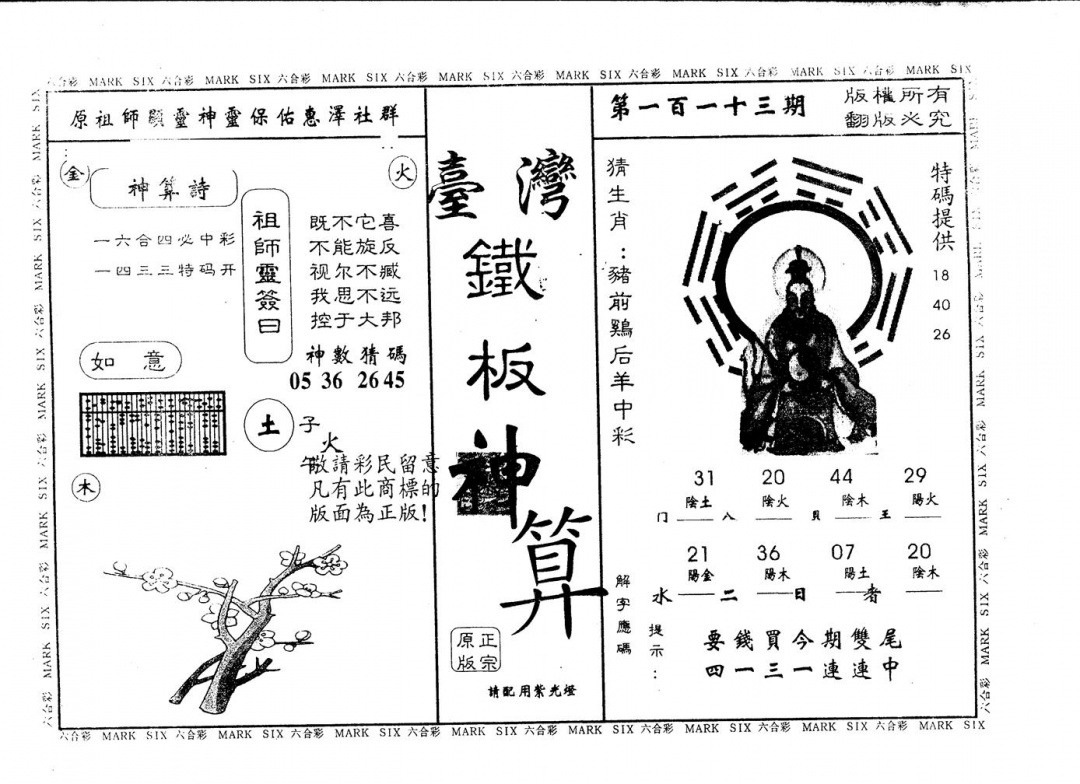 六合彩 MARK SIX 六合彩 MARK SIX 六合彩 MARK SIX 六合彩 MARK SIX 六合彩 MARK SIX 六合彩 MARK SIX 六合彩 MARK SIX 六合彩 MARK SIX
原祖師顯靈神靈保佑惠澤社群
金
火
神算詩
一六合四必中彩
一四三三特码开
祖師靈簽曰
既不它喜
不能旋反
视尔不臧
我思不远
控于大邦
神數猜碼
05 36 26 45
如意
土
子
火
午
木
敬請彩民留意
凡有此商標的
版面為正版!
臺灣
鐵
板
神
算
正宗
原版
請配用紫光燈
第一百一十三期
版權所有
翻版必究
猜生肖:豬前鷄后羊中彩
特碼提供
18
40
26
31 20 44 29
陰土 陰火 陰木 陽火
门 八 貝 王
21 36 07 20
陽金 陽木 陽土 陰木
水 二 日 者
解字應碼
提示:
要錢買今期雙尾
四一三一連連中
六合彩 MARK SIX 六合彩 MARK SIX 六合彩 MARK SIX 六合彩 MARK SIX 六合彩 MARK SIX 六合彩 MARK SIX 六合彩 MARK SIX 六合彩 MARK SIX